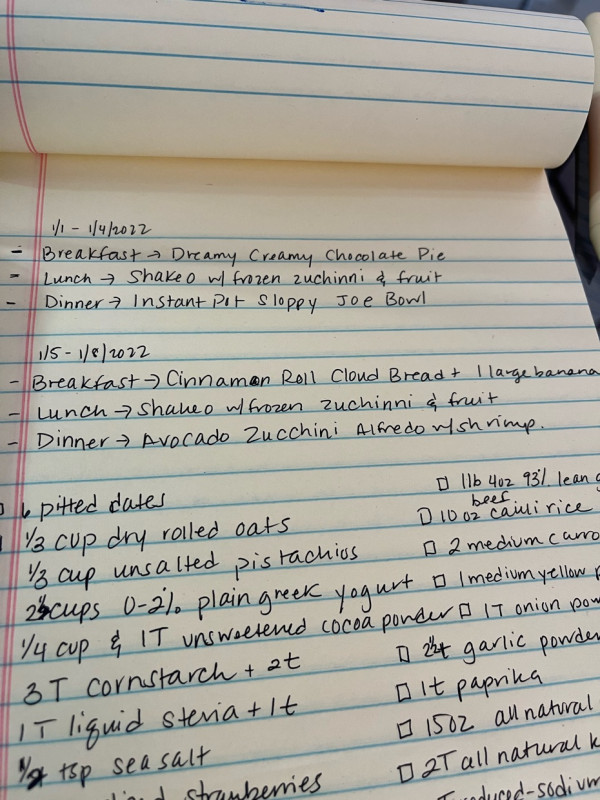 1/1 - 1/4/2022
- Breakfast → Dreamy Creamy Chocolate Pie
- Lunch → Shakeo w/ frozen zuchinni & fruit
- Dinner → Instant Pot Sloppy Joe Bowl
1/5 - 1/8/2022
- Breakfast → Cinnamon Roll Cloud Bread + 1 large banana
- Lunch → Shakeo w/ frozen zuchinni & fruit
- Dinner → Avocado Zucchini Alfredo w/ shrimp.
6 pitted dates
1/3 cup dry rolled oats
1/3 cup unsalted pistachios
cups 0-2% plain greek yogurt
1/4 cup & 1T unsweetened cocoa powder
3 T cornstarch + 2t
1 T liquid stevia + 1t
tsp sea salt
strawberries
□ 1lb 4oz 93% lean
beef
□ 10 oz cauli rice
□ 2 medium
□ 1 medium yellow
□ 1T onion
□ garlic powder
□ 1t paprika
□ 15oz all natural
□ 2T all natural